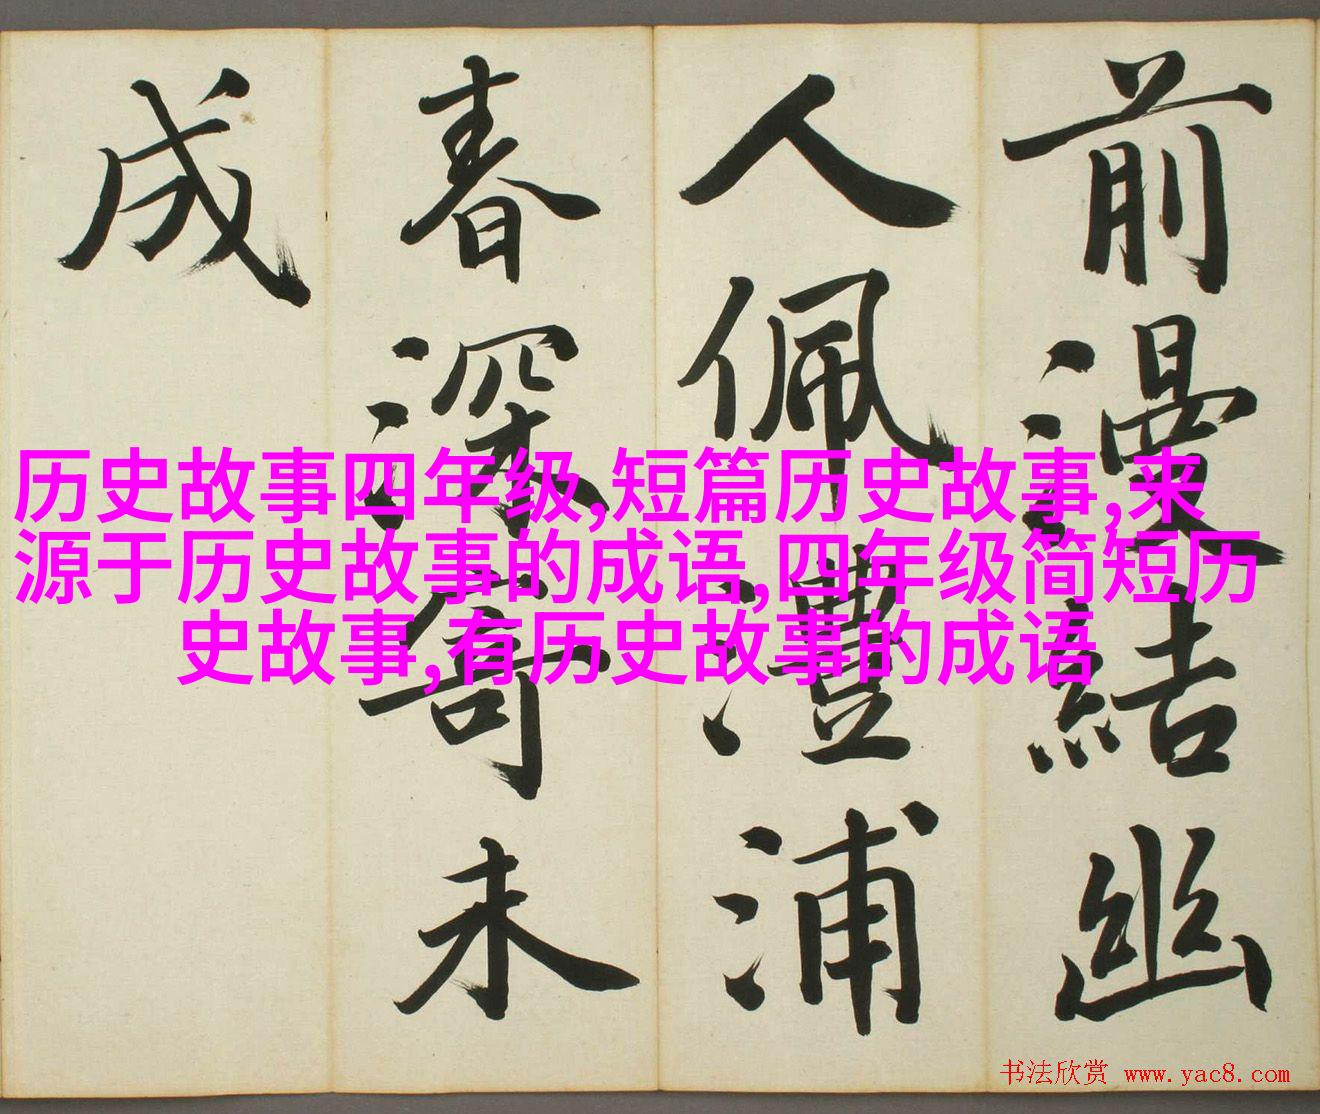 前漫結幽
人佩澧浦
春深寄未
成
历史故事四年级,短篇历史故事,来
源于历史故事的成语,四年级简短历
史故事,有历史故事的成语
书法欣赏 www.yac8.com